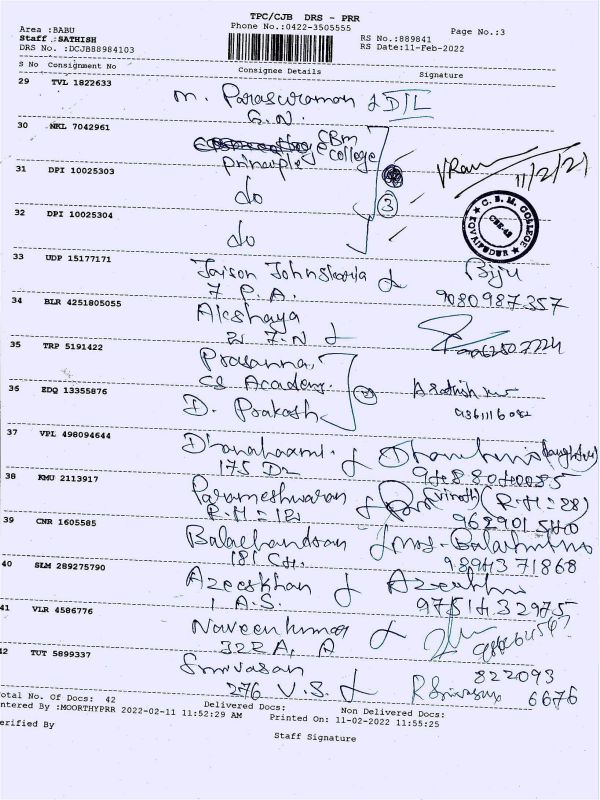 TPC/CJB DRS - PRR
Phone No.:0422-3505555
Page No.:3
Area :BABU
Staff :SATHISH
DRS No. :DCJB88984103
RS No.:889841
RS Date:11-Feb-2022
S No Consignment No Consignee Details Signature
29 TVL 1822633
m. Parasuraman & DIL
G.N.
30 NKL 7042961
CBM
college
principle
31 DPI 10025303
do
3
VRam
11/2/21
32 DPI 10025304
do
C. B. M. COLLEGE
CBE-42
KOVAIPUDUR
33 UDP 15177171
7 P.A.
Biju
9080987357
34 BLR 4251805055
Akshaya
2 7.N
35 TRP 5191422
Prasanna,
CS Academy.
36 EDQ 13355876
D. Prakash
37 VPL 498094644
175 D2
38 KMU 2113917
Parameshwaran (Vinoth) (R.H = 28)
R.H = 12
39 CNR 1605585
Balachandran
181 CH.
9894371868
40 SLM 289275790
Azeeskhan &
1 A.S.
9751432975
41 VLR 4586776
Naveenkumar &
322 A, A
42 TUT 5899337
Srinivasan
276 V.S. & R Srinivasan
822093
6676
Total No. Of Docs: 42 Delivered Docs: Non Delivered Docs:
ntered By :MOORTHYPRR 2022-02-11 11:52:29 AM Printed On: 11-02-2022 11:55:25
erified By
Staff Signature